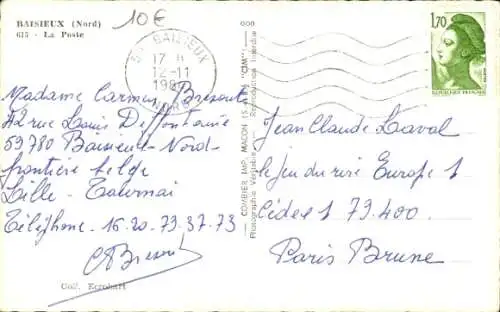 BAISIEUX (Nord)
615 - La Poste
10€
59 BAISIEUX
17 H
12-11
198
NORD
1,70
REPUBLIQUE FRANÇAISE
Madame Carmen Bresout
42 rue Louis Deffontaine
59780 Baisieux-Nord-
frontière belge
Lille - Tournai
Téléphone - 16-20-79-37-73
CBresout
Coll. Ecrohart
COMBIER IMP. MACON (S.-&-L.) "CIM"
Photographie Véritable - Reproduction Interdite
Jean Claude Laval
le jeu du rire Europe 1
Cédex 1 79.400
Paris Brune